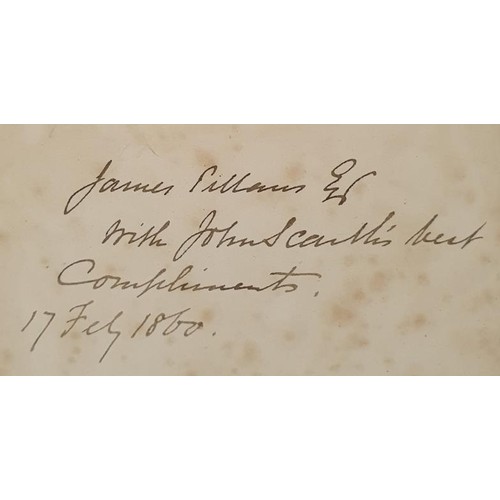 James Pillans Esq
With John Scarth's best
Compliments.
17 Feby 1860.